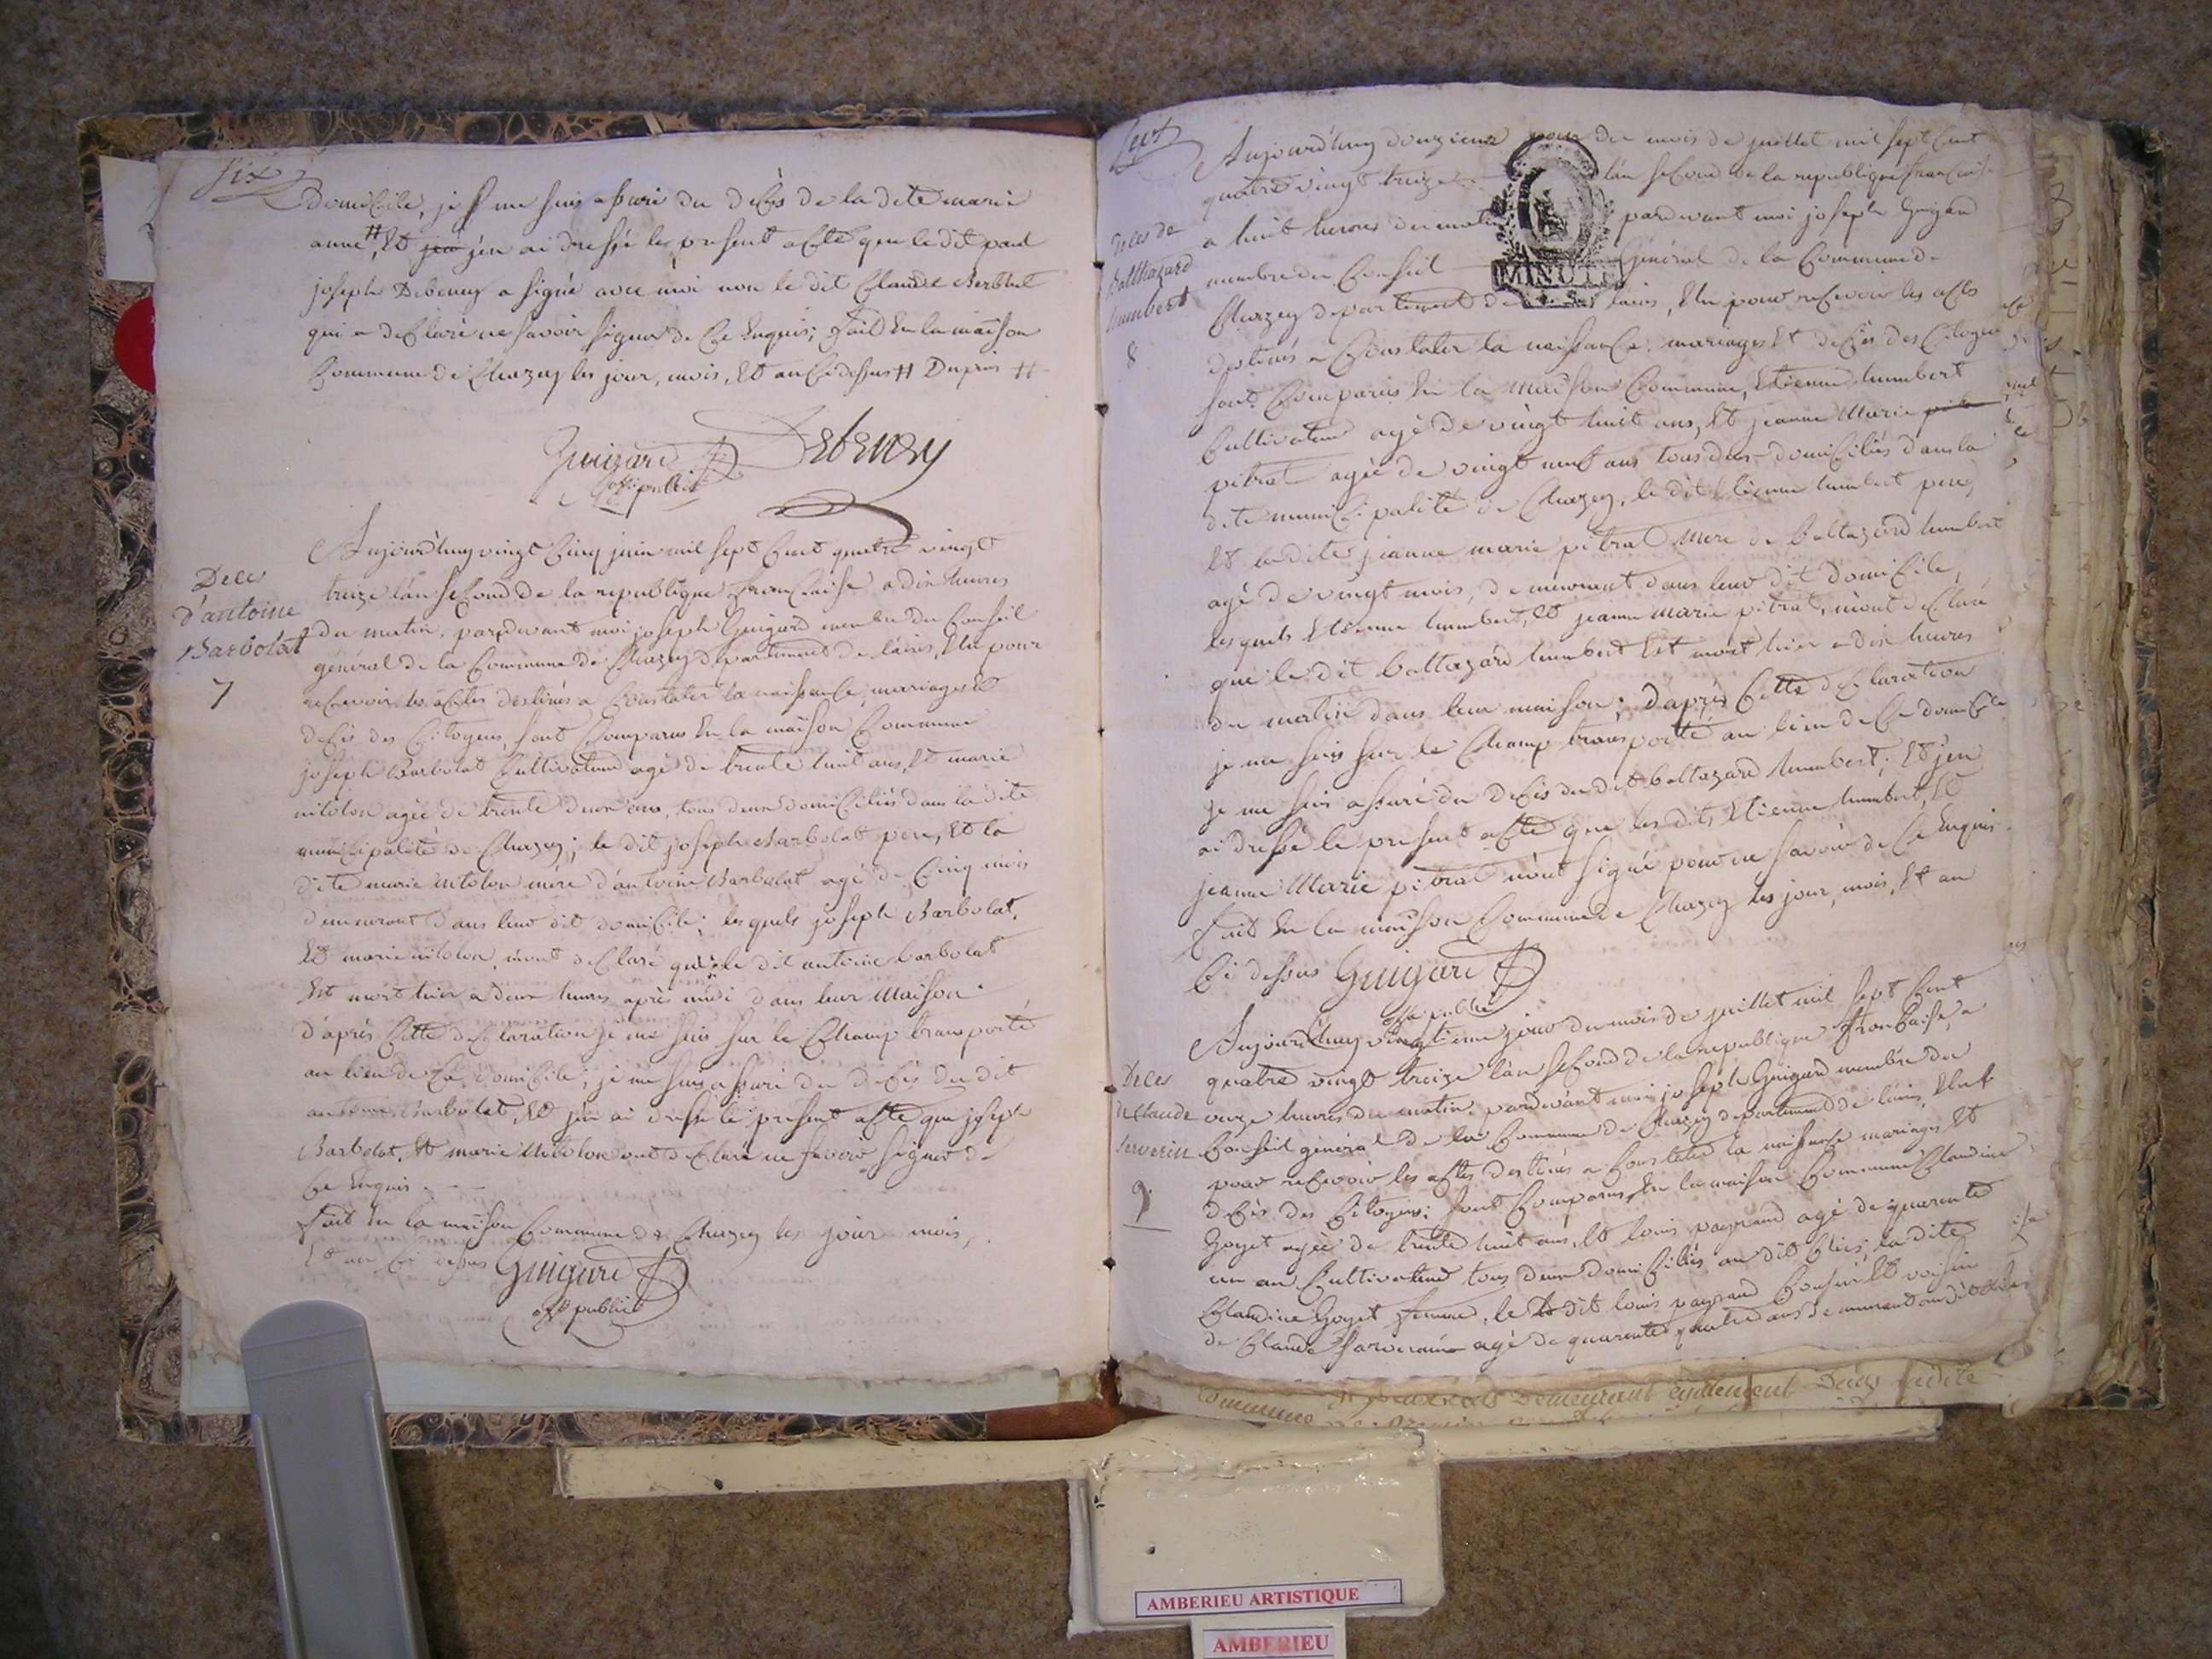 six
domicile, je me suis assuré du décès de la dite marie
anne #, Et j'en ai dressé le present acte que le dit paul
joseph Debeney a signé avec moi non le dit Claude
qui a declaré ne savoir signer de ce enquis; fait En la maison
Commune de Chazey les jour, mois, Et an ci dessus #
Guigard Debeney
off. public
Aujourd'huy vingt cinq juin mil sept cent quatre vingt
Deces
d'antoine
Barbolat
7
treize l'an second de la republique francaise a dix heures
du matin, pardevant moi joseph Guigard membre du Conseil
général de la Commune de Chazey departement de l'ain, Elu pour
recevoir les actes destinés a Constater la naissance, mariages Et
decès des Citoyens, sont Comparus En la maison Commune
joseph Barbolat Cultivateur agé de trente huit ans, Et marie
agée de trente deux ans, tous deux domiciliés dans la dite
municipalité de Chazey; le dit joseph Barbolat pere, Et la
dite marie mère d'antoine Barbolat agé de Cinq mois
demeurant dans leur dit domicile; lesquels joseph Barbolat,
Et marie m'ont declaré que le dit antoine barbolat
Est mort hier a deux heures après midi dans leur Maison
d'après Cette declaration je me suis sur le Champ transporté
au lieu de ce domicile, je me suis assuré du decès du dit
antoine Barbolat, Et j'en ai dressé le present acte que joseph
Barbolat, Et marie ont declaré ne savoir signer de
Ce Enquis.
fait En la maison Commune de Chazey les jour mois,
Et an Ci dessus Guigard
off. public
sept
Aujourd'huy douzieme jour du mois de juillet mil sept Cent
quatre vingt treize l'an second de la republique francaise
Deces de
Balthazard
humbert
8
a huit heures du matin pardevant moi joseph Guigard
membre du Conseil Général de la Commune de
MINUTE
Chazey departement de l'ain, Elu pour recevoir les actes
destinés a Constater la naissance, mariages Et decès des Citoyens
sont Comparus En la maison Commune, Etienne humbert
Cultivateur agé de vingt huit ans, Et jeanne Marie
pitrat agée de vingt neuf ans tous deux domiciliés dans la
dite municipalité de Chazey, le dit Etienne humbert pere,
Et la dite jeanne marie pitrat Mere de baltazard humbert
agé de vingt mois, demeurant dans leur dit domicile,
lesquels Etienne humbert, Et jeanne marie pitrat, m'ont declaré
que le dit baltazard humbert Est mort hier a dix heures
du matin dans leur maison; d'après Cette declaration
je me suis sur le Champ transporté au lieu de Ce domicile
je me suis assuré du decès du dit baltazard humbert; Et j'en
ai dressé le present acte que les dits Etienne humbert, Et
jeanne Marie pitrat n'ont signé pour ne savoir de Ce Enquis.
fait En la maison Commune de Chazey les jour, mois, Et an
Ci dessus Guigard
off. public
Aujourd'huy vingtieme jour du mois de juillet mil sept Cent
quatre vingt treize l'an second de la republique francaise, a
Deces
de Claude
Serverin
9
onze heures du matin, pardevant moi joseph Guigard membre du
Conseil général de la Commune de Chazey departement de l'ain, Elu
pour recevoir les actes destinés a Constater la naissance mariages Et
decès des Citoyens; sont Comparus En la maison Commune Claudine
Goyet agée de trente huit ans, Et louis agé de quarente
un an Cultivateur tous deux domiciliés au dit la dite
Claudine Goyet femme, le dit louis Cousin Et voisin
de Claude agé de quarente quatre ans demeurant au dit
demeurant egalement Dans ladite
AMBERIEU ARTISTIQUE
AMBERIEU